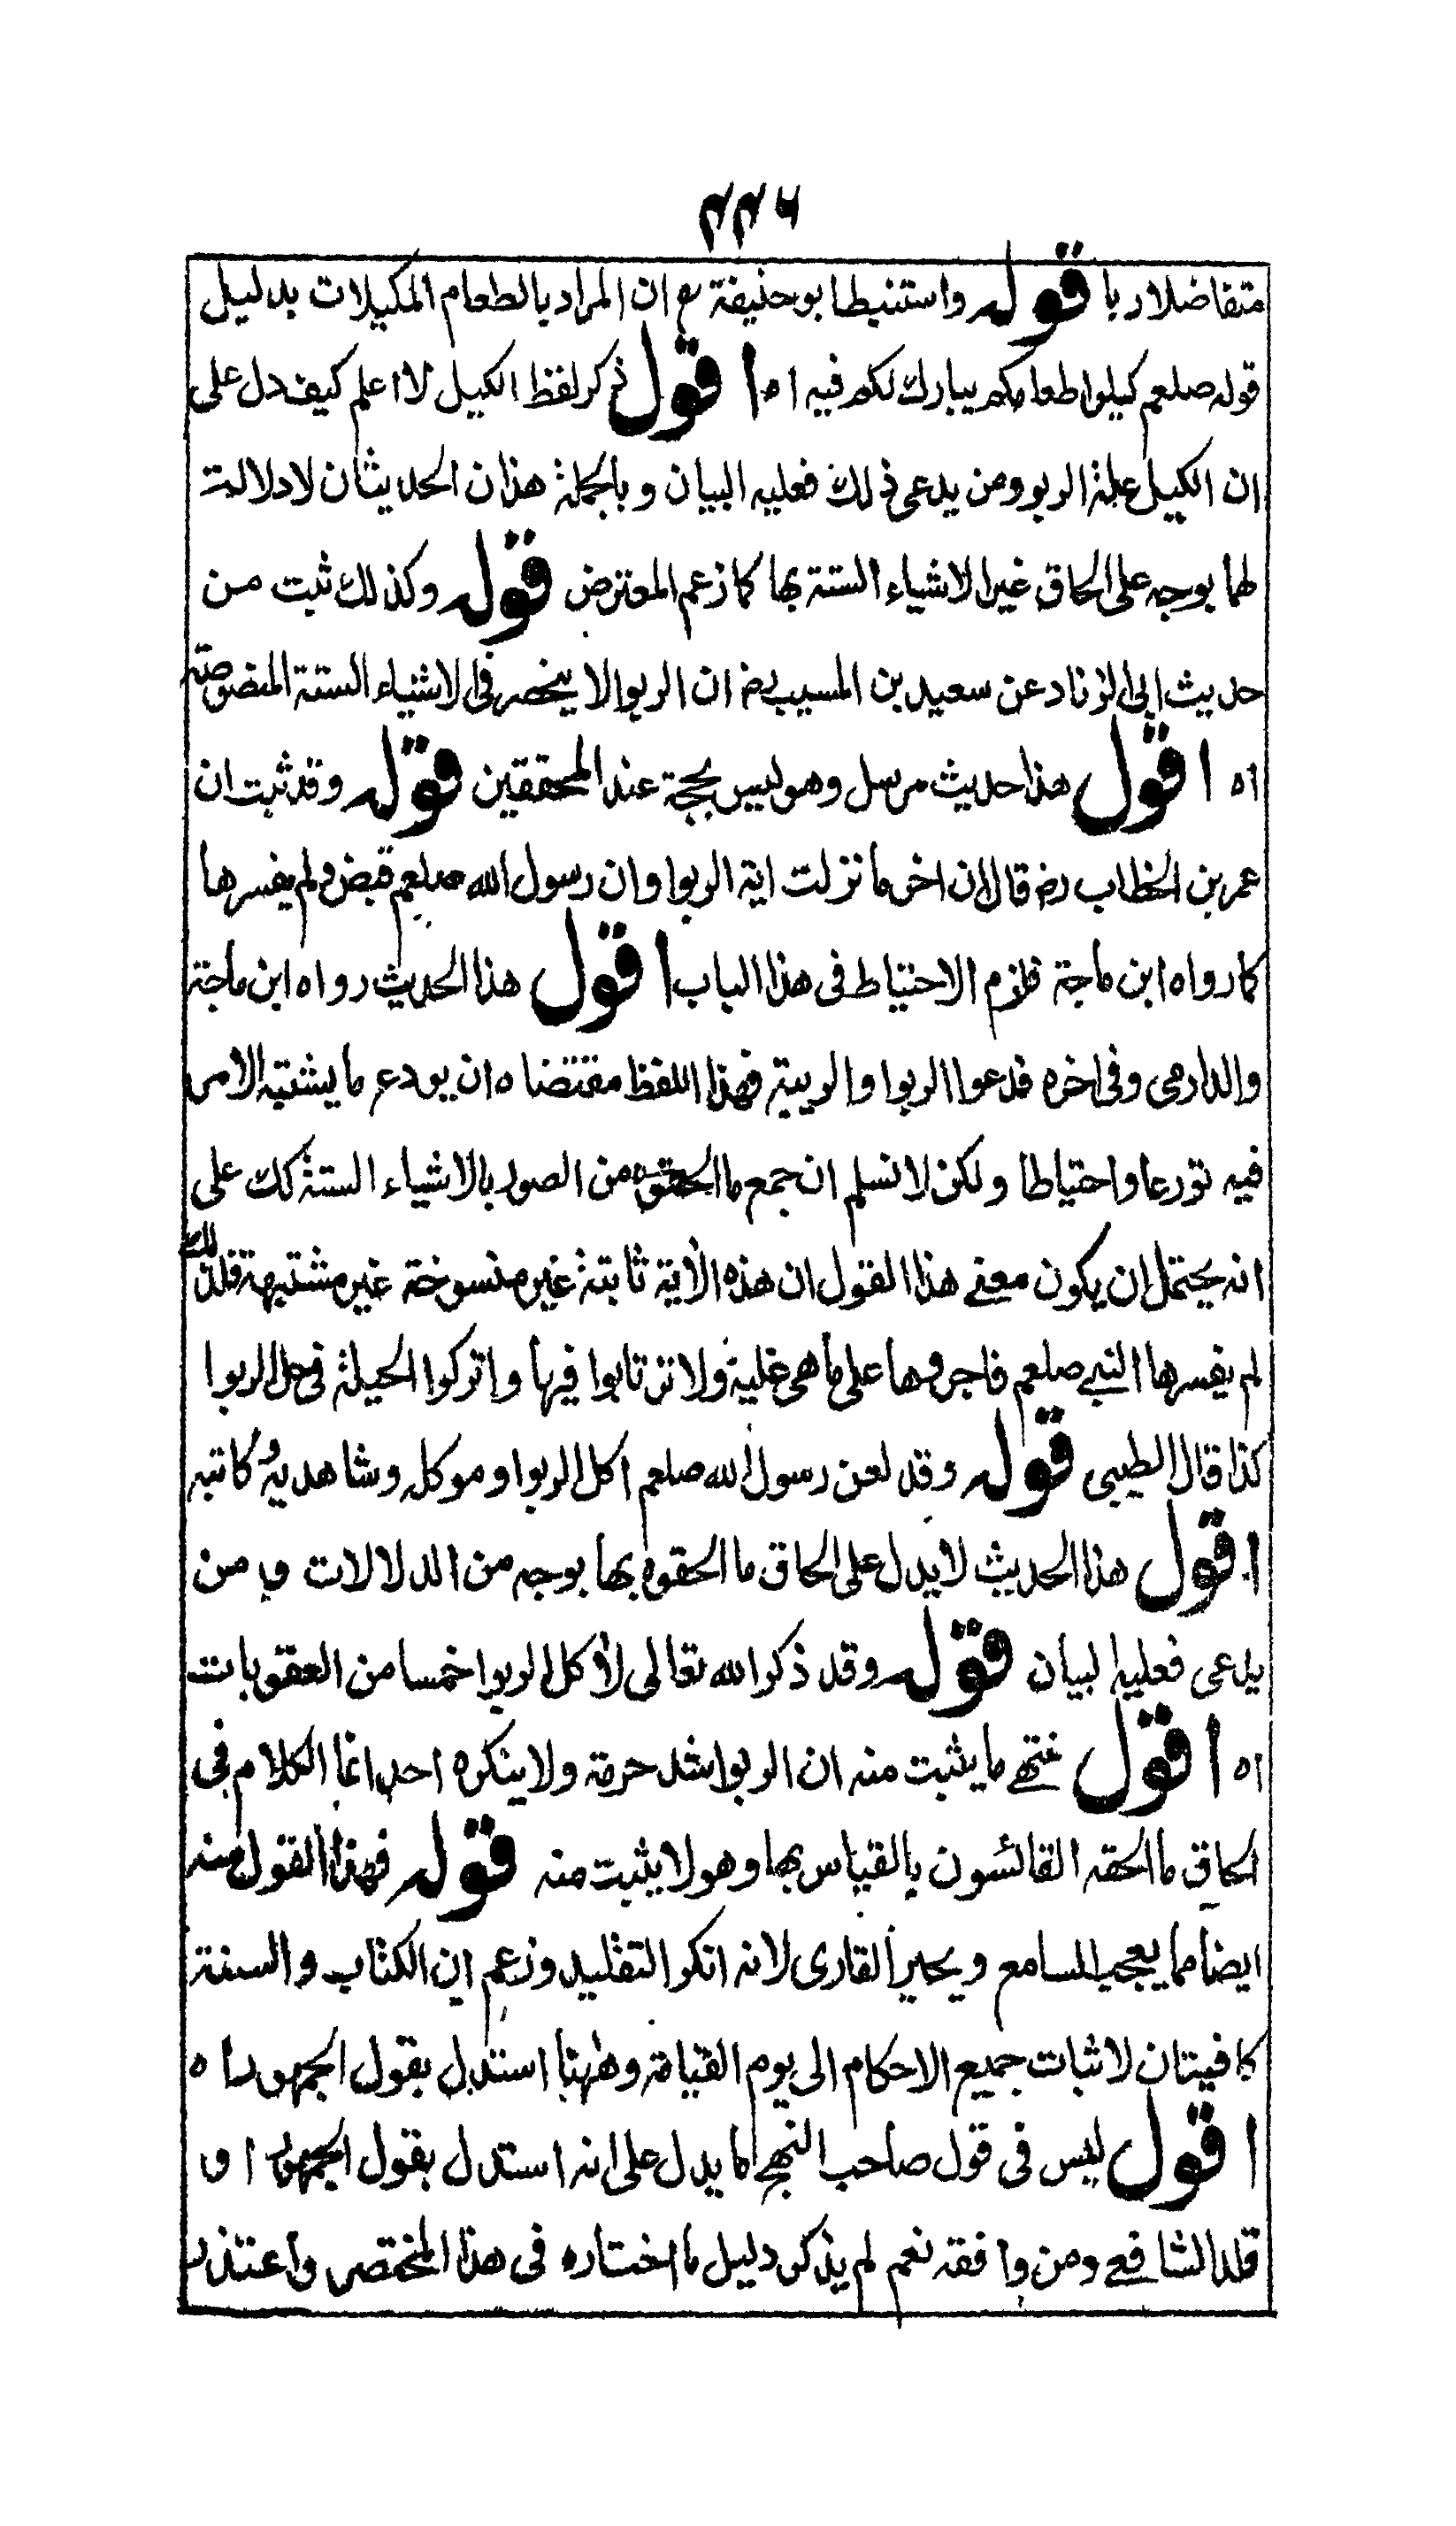 ۴۴۶
متفاضلا ربا قوله واستنبط ابوحنيفة رح ان المراد بالطعام المكيلات بدليل
قوله صلعم كيلوا طعامكم يبارك لكم فيه اه اقول ذكر لفظ الكيل لا اعلم كيف دل على
ان الكيل علة الربو ومن يدعى ذلك فعليه البيان وبالجملة هذان الحديثان لا دلالة
لهما بوجه على الحاق غير الاشياء الستة بها كما زعم المعترض قوله وكذلك ثبت من
حديث ابى الزناد عن سعيد بن المسيب رض ان الربوا لا ينحصر فى الاشياء الستة المنصوصة
اه اقول هذا حديث مرسل وهو ليس بحجة عند المحققين قوله وقد ثبت ان
عمر بن الخطاب رض قال ان اخر ما نزلت اية الربوا وان رسول الله صلعم قبض ولم يفسرها
كما رواه ابن ماجة فلزم الاحتياط فى هذا الباب اقول هذا الحديث رواه ابن ماجة
والدارمى وفى اخره فدعوا الربوا والريبة فهذا اللفظ مقتضاه ان يودع ما يشتبه الامر
فيه تورعا واحتياطا ولكن لا نسلم ان جمع ما الحقوه من الصور بالاشياء الستة كك على
انه يحتمل ان يكون معنے هذا القول ان هذه الآية ثابتة غير منسوخة غير مشتبهة فلذلك
لم يفسرها النبے صلعم فاجروها على ما هى عليه ولا ترتابوا فيها واتركوا الحيلة فى حل الربوا
كذا قال الطيبى قوله وقد لعن رسول الله صلعم اكل الربوا وموكله وشاهديه وكاتبه
اقول هذا الحديث لا يدل على الحاق ما الحقوه بها بوجه من الدلالات و من
يدعى فعليه البيان قوله وقد ذكر الله تعالى لأكل الربوا خمسا من العقوبات
اه اقول غتهے ما يثبت منه ان الربوا شد حرمة ولا ينكره احد انما الكلام فى
الحاق ما الحقه القائسون بالقياس بها وهو لا يثبت منه قوله فهذا القول منه
ايضا مما يعجب السامع ويحير القارى لانه انكر التقليد وزعم ان الكتاب والسنة
كافيتان لاثبات جميع الاحكام الى يوم القيامة وههنا استدل بقول الجمهور اه
اقول ليس فى قول صاحب النهجے ما يدل على انه استدل بقول الجمهور او
قلد الشافعے ومن وافقه نعم لم يذكر دليل ما اختاره فى هذا المختصر واعتذر